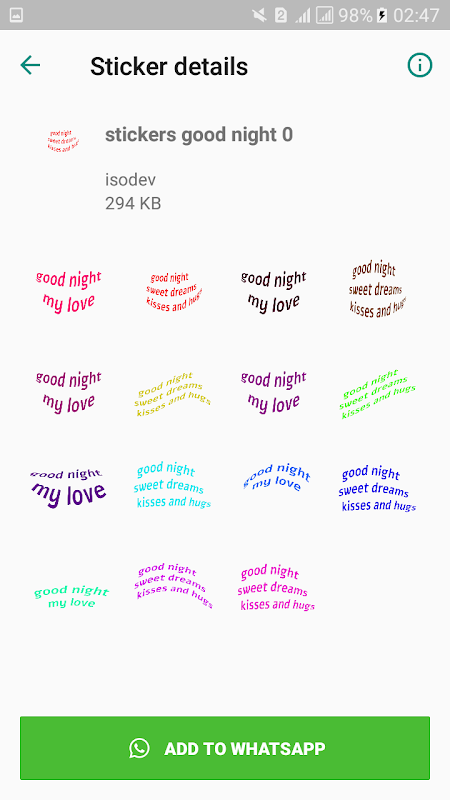 2 98% 02:47
Sticker details
good night
sweet dreams
kisses and hugs
stickers good night 0
isodev
294 KB
good night
my love
good night
sweet dreams
kisses and hugs
good night
my love
good night
sweet dreams
kisses and hugs
good night
my love
good night
sweet dreams
kisses and hugs
good night
my love
good night
sweet dreams
kisses and hugs
good night
my love
good night
sweet dreams
kisses and hugs
good night
my love
good night
sweet dreams
kisses and hugs
good night
my love
good night
sweet dreams
kisses and hugs
good night
sweet dreams
kisses and hugs
ADD TO WHATSAPP